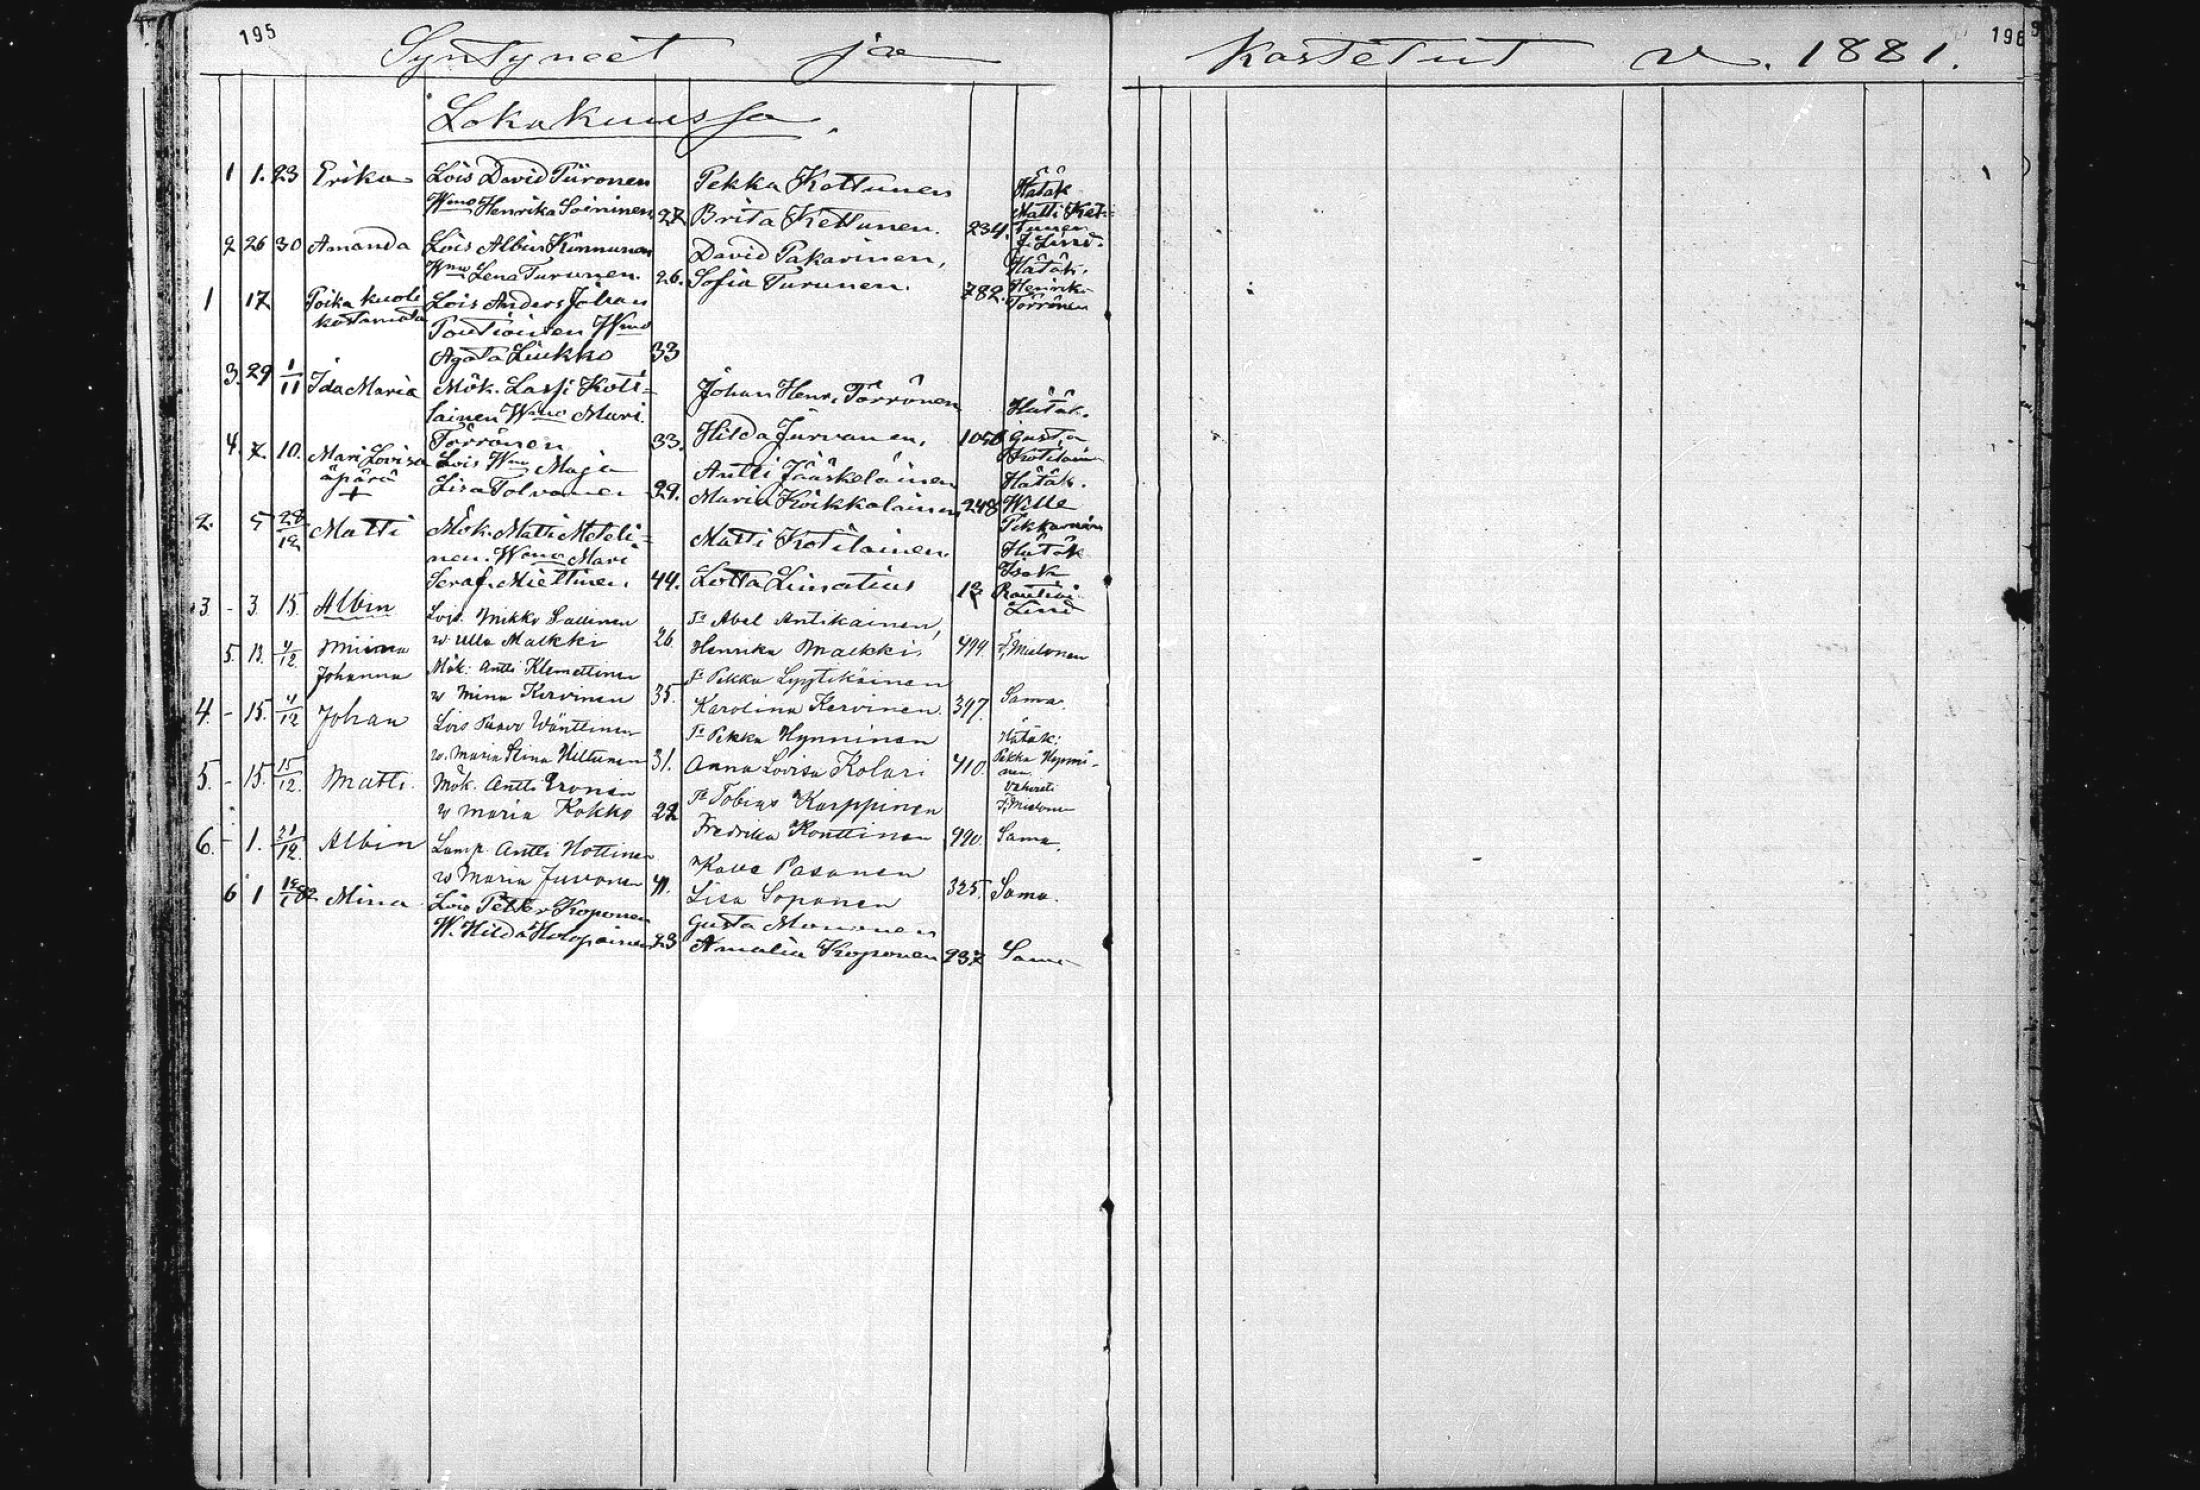 195
Syntyneet ja Kastetut v. 1881.
Lokakuussa.
1 1. 23 Erika Lois David Piironen Pekka Kettunen Hätäk
Wmo Henrika Soininen 27 Brita Kettunen. 234. Matti Ket-
tunen
2 26 30 Amanda Lois Albin Kinnunen David Pakarinen, F. Lind.
Wmo Lena Turunen. 26. Sofia Turunen. 782. Hätäk.
Henrik
Törrönen
1 17 Poika kuoli Lois Anders Johan
kastamata Pontioinen Wmo
Agata Liukko 33
3. 29 1/11 Ida Maria Mök. Lassi Koti-
lainen Wmo Mari Johan Henr. Törrönen Hätäk.
Törrönen 33. Hilda Jurvanen, Gusta
Kotilain
4. 7. 10. Mari Lovisa Lois Wmo Maja Antti Jääskeläinen Hätäk.
äpärä Lisa Tolvanen 29. Maria Koikkalainen 248 Wille
+ Pekkarinen
2. 5 28/12 Matti Mök. Matti Meteli-
nen. Wmo Mari Matti Kotilainen. Hätäk
Seraf. Miettinen. 44. Lotta Limatius 12 Isak
Lind
3 - 3. 15. Albin Lois. Mikko Sallinen Tr Abel Antikainen,
w. Ulla Malkki 26. Henrika Malkki. 499. F. Mielonen
5. 13. 4/12. Miina Johanna Mök. Antti Klemettinen Tr Pekka Lyytikäinen
w Mina Kervinen 35. Karolina Kervinen. 397. Sama.
4. - 15. 4/12 Johan Lois Paavo Wänttinen Tr Pekka Hynninen Hätäk:
w. Maria Stina Hiltunen 31. Anna Lovisa Kolari 410. Pekka Hynni-
nen.
Vahvisti
5. - 15. 15/12. Matti. Mök. Antti Eronen Tr Tobias Karppinen F. Mielonen
w Maria Kokko 22 Fredrika Konttinen 990. Sama.
6. - 1. 21/12. Albin Lamp. Antti Hottinen Kalle Pasanen
w Maria Juvonen 41. Lisa Soponen 325. Sama.
6 1 Mina Lois Petter Koponen Gusta Mononen
W. Hilda Holopainen 23 Amalia Koponen 237 Sama